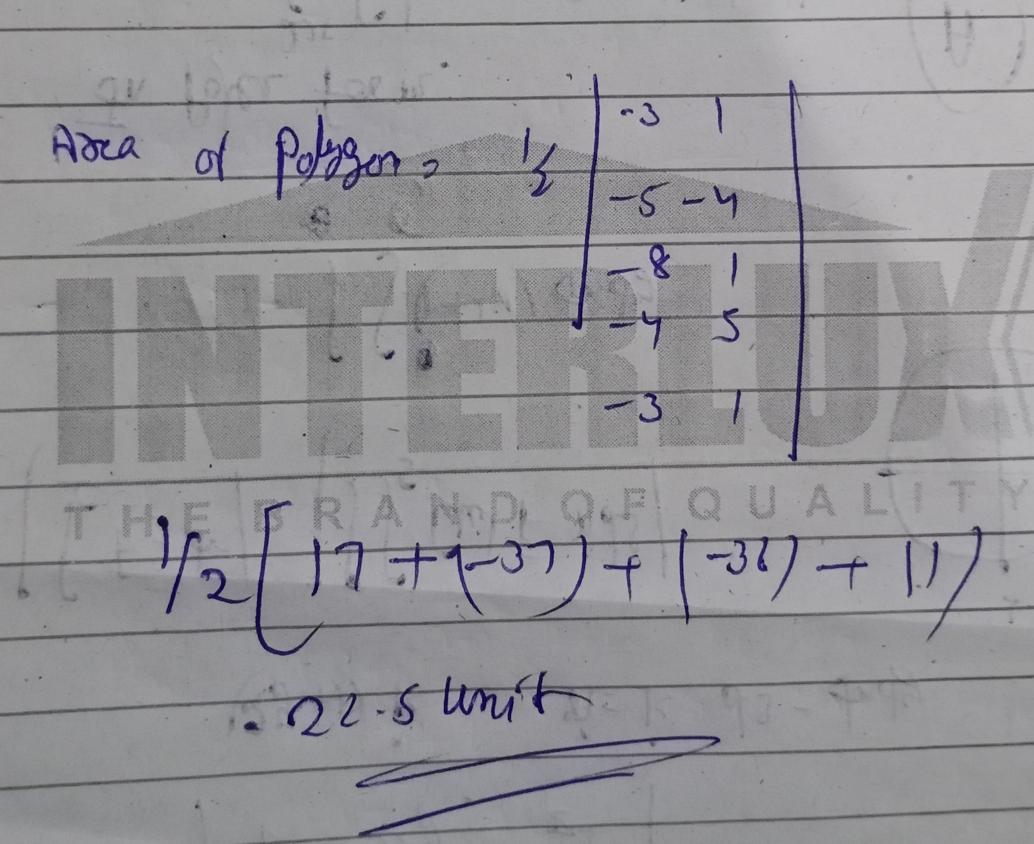 Area of Polygon = 1/2 | -3 1 |
-5 -4
-8 1
-4 5
-3 1
INTERLUX
THE BRAND OF QUALITY
1/2 [ 17 + (-37) + (-36) + 11 )
. 22.5 Unit